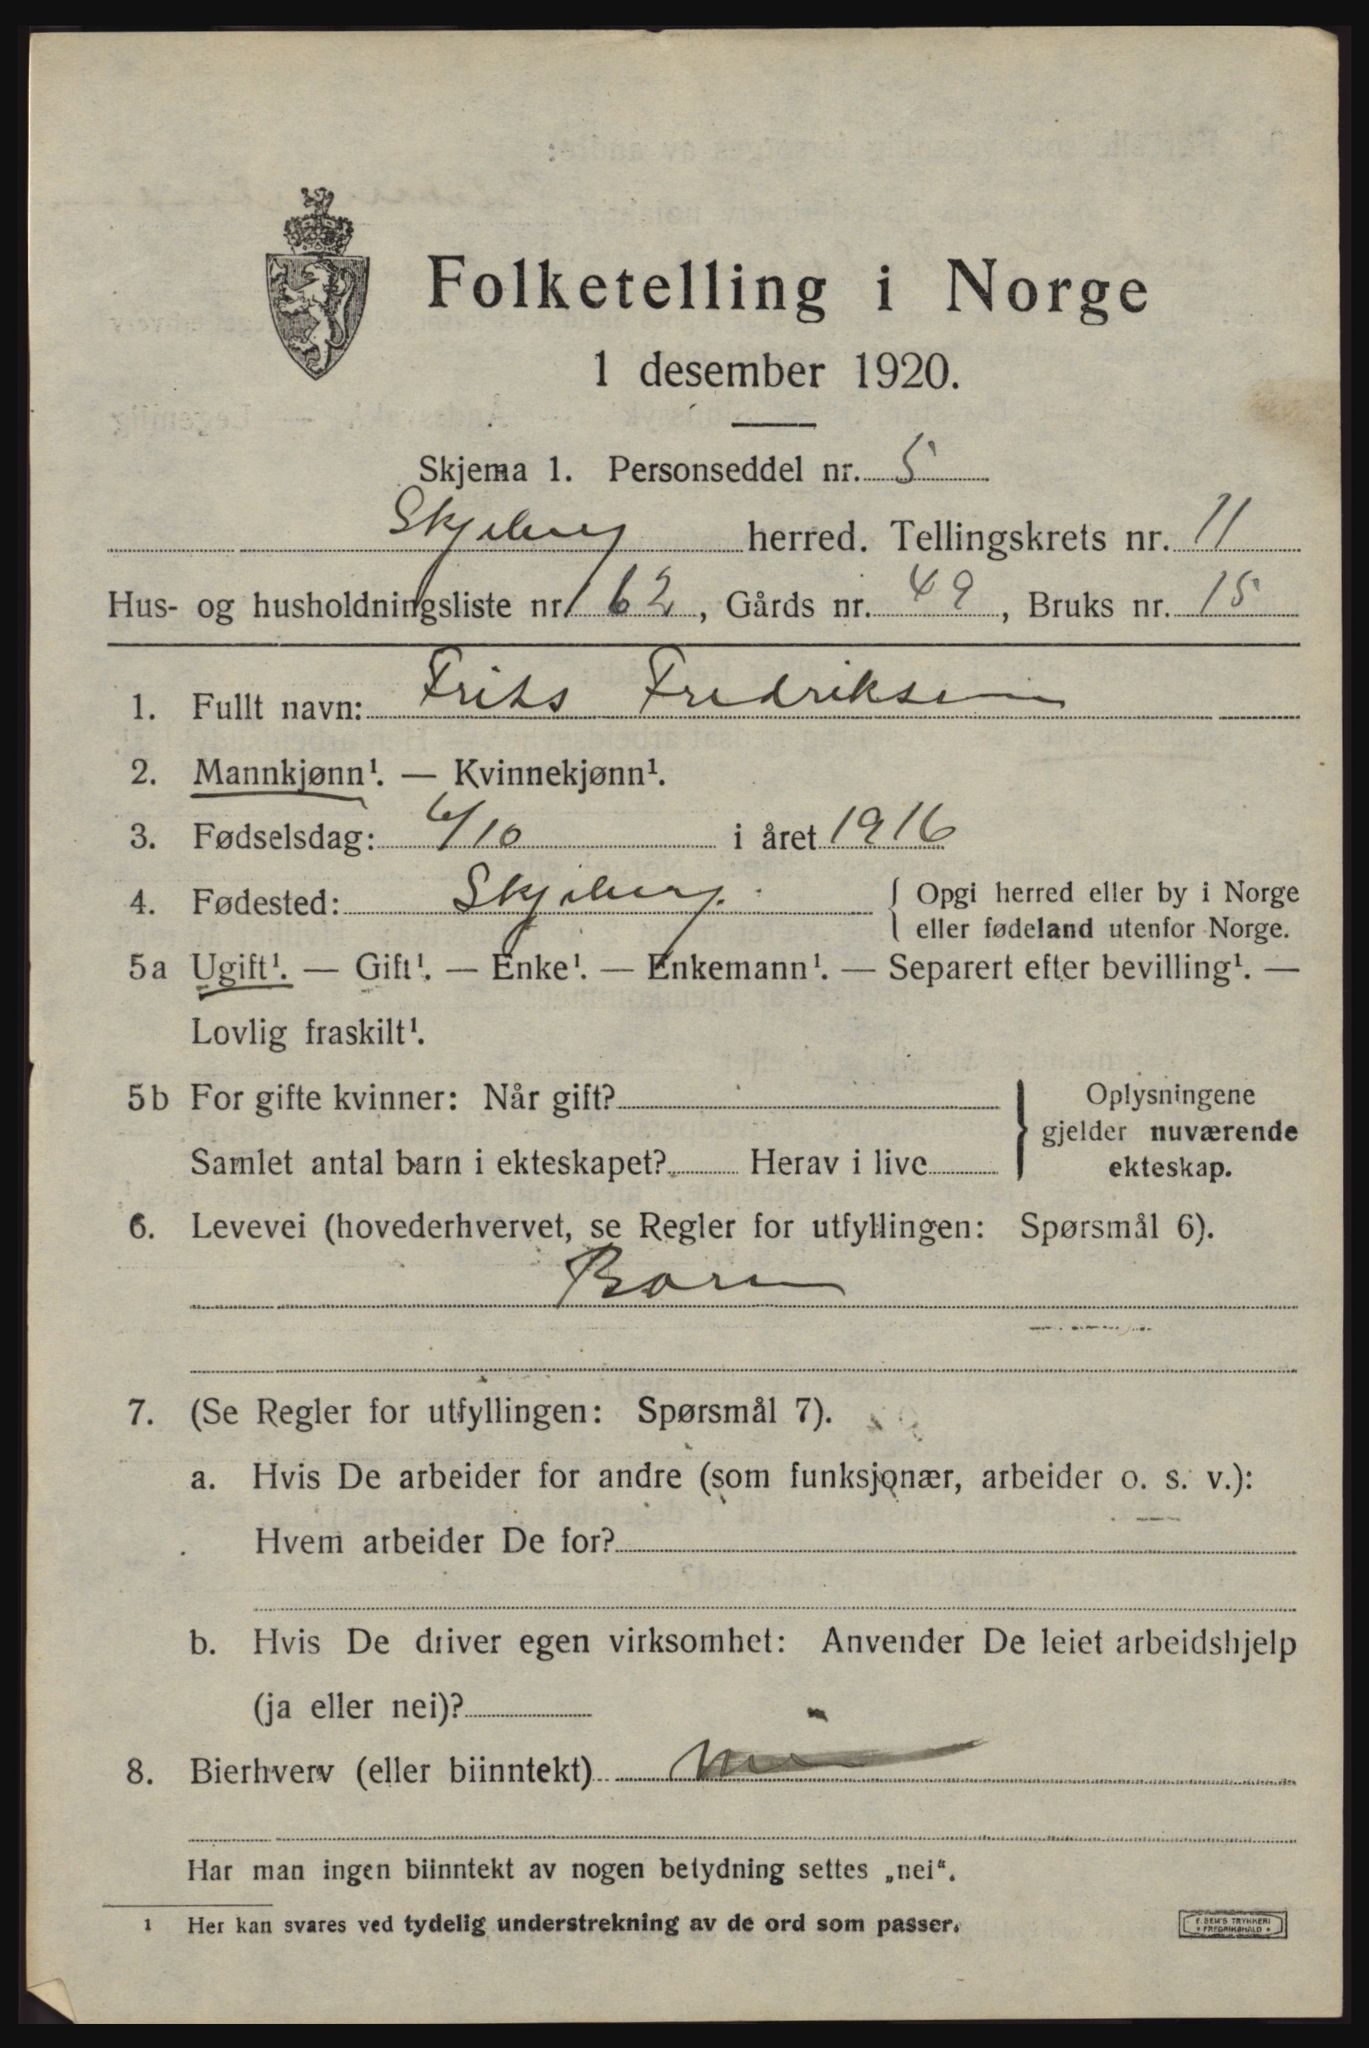 Folketelling i Norge
1 desember 1920.
Skjema 1. Personseddel nr. 5
Skjeberg herred. Tellingskrets nr. 11
Hus- og husholdningsliste nr. 62, Gårds nr. 49, Bruks nr. 15
1. Fullt navn: Frits Fredriksen
2. Mannkjønn¹. — Kvinnekjønn¹.
3. Fødselsdag: 6/10 i året 1916
4. Fødested: Skjeberg. { Opgi herred eller by i Norge
eller fødeland utenfor Norge.
5a Ugift¹. — Gift¹. — Enke¹. — Enkemann¹. — Separert efter bevilling¹. —
Lovlig fraskilt¹.
5b For gifte kvinner: Når gift?
Samlet antal barn i ekteskapet? Herav i live
} Oplysningene
gjelder nuværende
ekteskap.
6. Levevei (hovederhvervet, se Regler for utfyllingen: Spørsmål 6).
Barn
7. (Se Regler for utfyllingen: Spørsmål 7).
a. Hvis De arbeider for andre (som funksjonær, arbeider o. s. v.):
Hvem arbeider De for?
b. Hvis De driver egen virksomhet: Anvender De leiet arbeidshjelp
(ja eller nei)?
8. Bierhverv (eller biinntekt)
Har man ingen biinntekt av nogen betydning settes „nei“.
1 Her kan svares ved tydelig understrekning av de ord som passer.
F. SEM'S TRYKKERI
* FREDRIKSHALD *